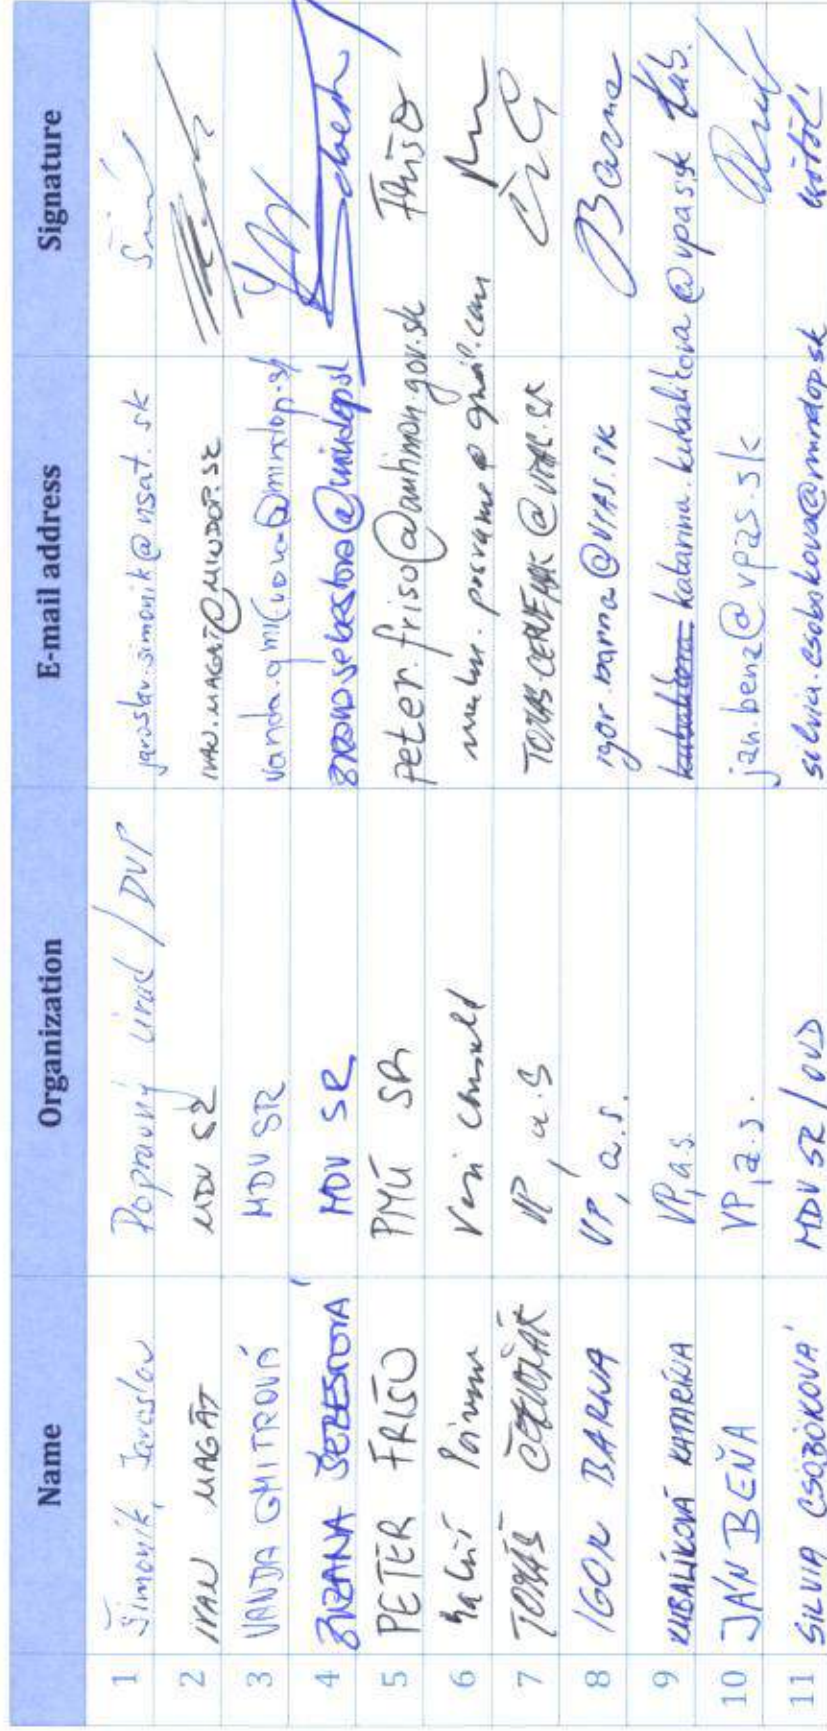 Name Organization E-mail address Signature
1 Šimonik, Jaroslav Dopravný úrad / DVP jaroslav.simonik@nsat.sk
2 IVAN MAGÁT MDV SR IVAN.MAGAT@MINDOP.SK
3 VANDA GMITROVÁ MDV SR vanda.gmitrova@mindop.sk
4 ZUZANA ŠEBESTOVÁ MDV SR
5 PETER FRIŠO PMÚ SR peter.friso@antimon.gov.sk Frišo
6
7 TOMÁŠ ČERVEŇÁK VP, a.s TOMAS.CERVENAK@VPAS.SK
8 IGOR BARNA VP, a.s. igor.barna@VPAS.SK Barna
9 KUBALÍKOVÁ KATARÍNA VP, a.s. katarina.kubalikova@vpas.sk Kub.
10 JÁN BEŇA VP, a.s. jan.bena@vpas.sk
11 SILVIA CSÖBÖKOVÁ MDV SR / OVD silvia.csobokova@mindop.sk